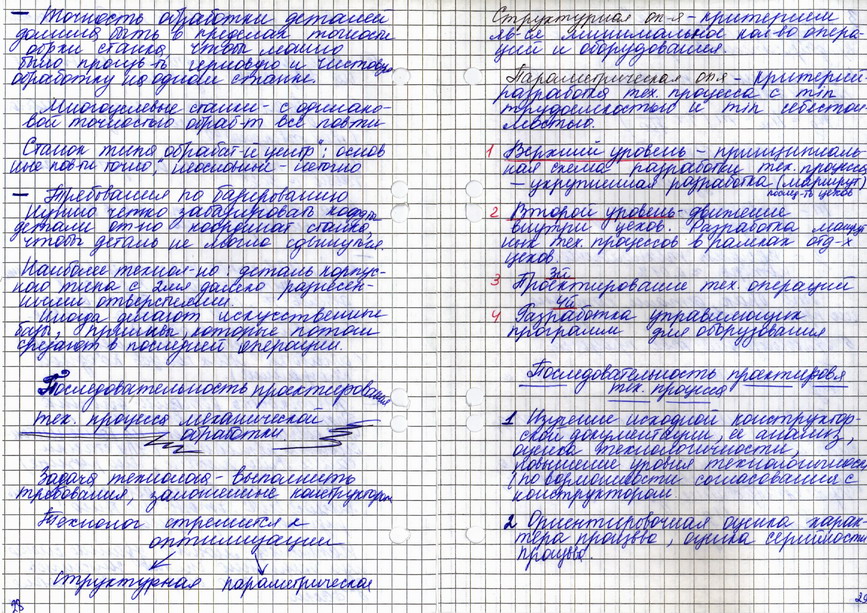 — Точность обработки деталей
должна быть в пределах точности
станка, чтобы можно
было произв-ть черновую и чистовую
обработку на одном станке.
Многоцелевые станки - с одинако-
вой точностью обраб-т все пов-ти
Станок типа „обрабат-й центр": основ
ные пов-ти точно, неосновные - неточно
— Требования по базированию
Нужно четко забазировать
детали отн-но координат станка,
чтобы деталь не могла сдвинуться.
Наиболее технол-но: деталь корпус-
ного типа с 2мя далеко разнесен-
ными отверстиями.
Иногда делают искусственные
базы, приливы, которые потом
срезают в последней операции.
Последовательность проектирования
тех. процесса механической
обработки
Задача технолога - выполнить
требования, заложенные конструктором
Технолог стремится к
оптимизации
структурная параметрическая
28
Структурная оп-я - критерием
яв-ся минимальное кол-во опера-
ций и оборудования.
Параметрическая оп-я - критерий
разработка тех. процесса с min
трудоемкостью и min себестои
мостью.
1 Верхний уровень - принципиаль-
ная схема разработки тех. процесса
- укрупненная разработка (маршрут)
цехов
2 Второй уровень - движение
внутри цехов. Разработка маршрут
ных тех. процессов в рамках отд-х
цехов
3й
3 Проектирование тех. операций
4й
4 Разработка управляющих
программ для оборудования
Последовательность проектиров-я
тех. процесса
1 Изучение исходной конструктор-
ской документации, ее анализ,
оценка технологичности,
повышение уровня технологичности
(по возможности согласования с
конструктором
2 Ориентировочная оценка харак-
тера произв-ва, оценка серийности
произв-ва.